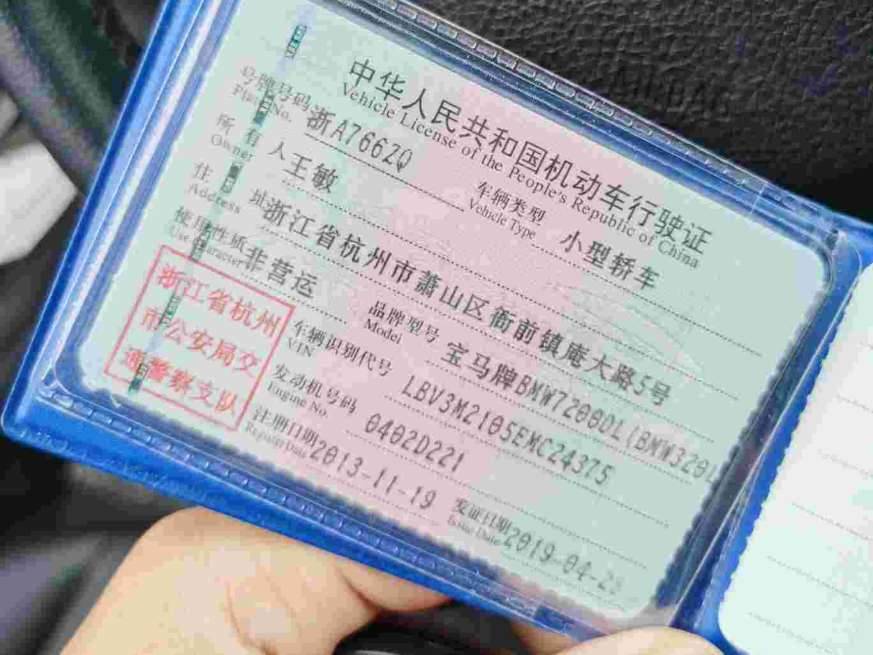 中华人民共和国机动车行驶证
Vehicle License of the People's Republic of China
号牌号码 浙A7662Q 车辆类型 小型轿车
Plate No. Vehicle Type
所有人 王敏
Owner
住址 浙江省杭州市萧山区衙前镇庵大路5号
Address
使用性质 非营运 品牌型号 宝马牌BMW7200DL(BMW320L
Use Character Model
浙江省杭州
市公安局交
通警察支队
车辆识别代号 LBV3M2105EMC24375
VIN
发动机号码 0402D221
Engine No.
注册日期 2013-11-19 发证日期 2019-04-2
Register Date Issue Date